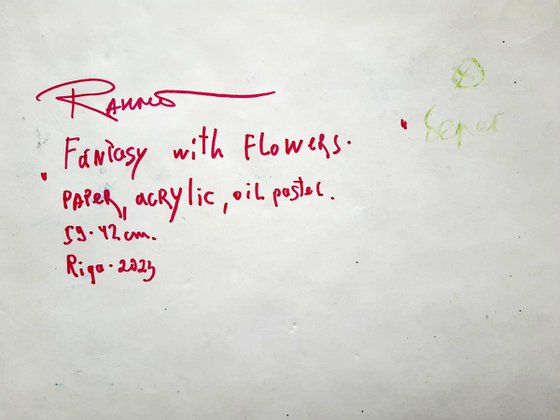 Fantasy with Flowers.
PAPER, acrylic, oil pastel.
59.42 cm.
Riga. 2023